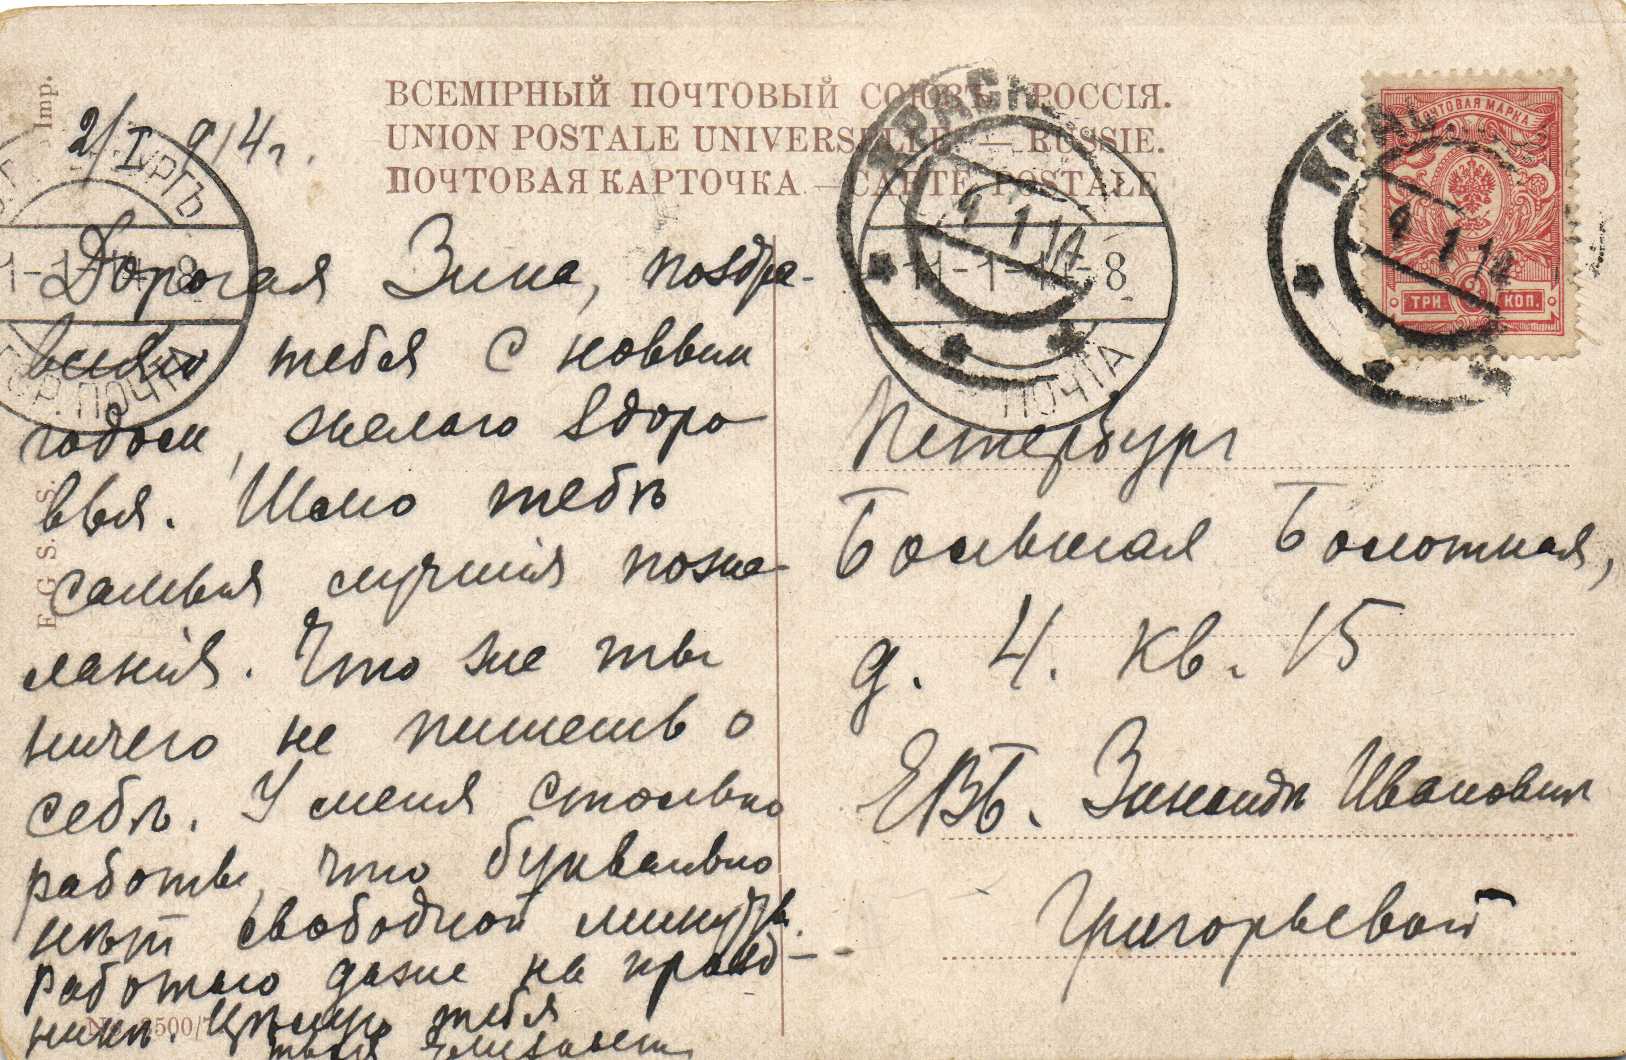 ВСЕМІРНЫЙ ПОЧТОВЫЙ СОЮЗЪ. РОССІЯ.
UNION POSTALE UNIVERSELLE. — RUSSIE.
ПОЧТОВАЯ КАРТОЧКА — CARTE POSTALE
Imp.
E. G. S. S. S.
2/I 914 г.
Дорогая Зина, поздра-
вляю тебя с новым
годом, желаю здоро
вья. Шлю тебѣ
самыя лучшія поже
ланія. Что же ты
ничего не пишешь о
себѣ. У меня столько
работы, что буквально
нѣт свободной минуты.
Работаю даже на празд-
никѣ. Цѣлую тебя
твоя
2500/7
ПОЧТОВАЯ МАРКА
ТРИ 3 КОП.
КРАС
4 1 14
КРАСН
4 1 14
11-1-14-8
ПОЧТА
УРГЪ
1-1-14-8
ГОР. ПОЧТА
Петербург
Большая Болотная,
д. 4. кв. 15
ЕВБ. Зинаидѣ Ивановнѣ
Григорьевой